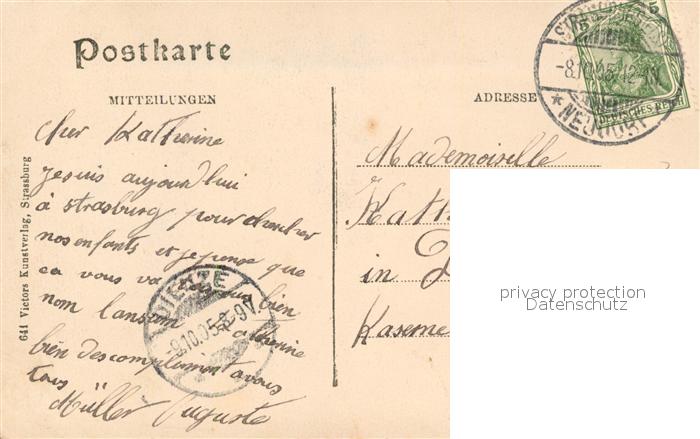 Postkarte
MITTEILUNGEN
ADRESSE
5
5
DEUTSCHES REICH
-8.10.05.12-1V.
* NEUDORF
641 Victors Kunstverlag, Strassburg
Cher Katherine
je suis aujourd'hui
à Strasburg pour chercher
nos enfants et je pense que
ca vous va bien
nom
bien des compliment a vous
tous
Müller Auguste
DIEUZE
-9.10.05.8-9V.
Mademoiselle
Kath
in D
Kaserne
privacy protection
Datenschutz